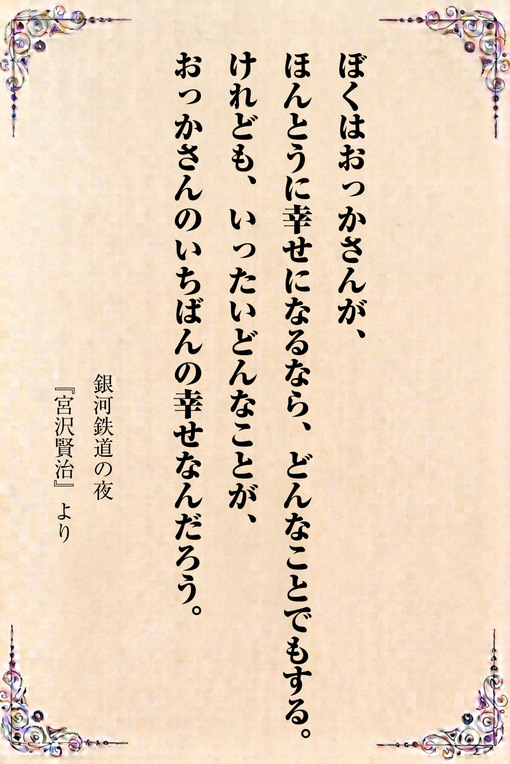 ぼくはおっかさんが、
ほんとうに幸せになるなら、どんなことでもする。
けれども、いったいどんなことが、
おっかさんのいちばんの幸せなんだろう。
銀河鉄道の夜
『宮沢賢治』より